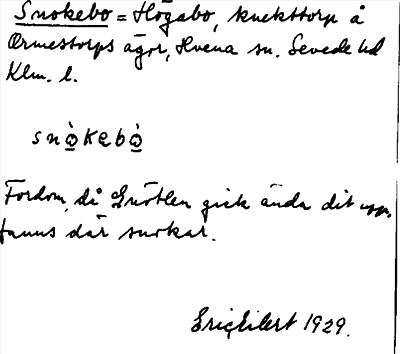 Snokebo = Högabo, knekttorp å
Ormestorps ägor, Hvena sn. Sevede hd
Klm. l.
snò̲kebò̲
Fordom, då Gnötlen gick ända dit upp,
fanns där snokar.
Eric Eilert 1929.